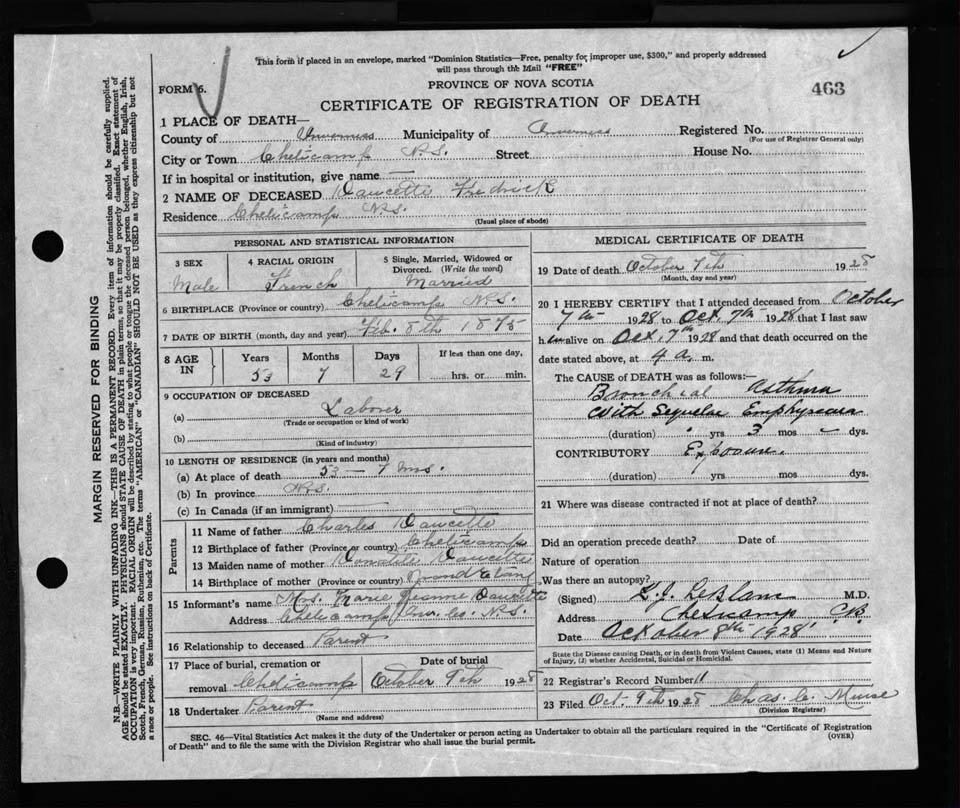 This form if placed in an envelope, marked "Dominion Statistics—Free, penalty for improper use, $300," and properly addressed
will pass through the Mail "FREE"
FORM 6.
PROVINCE OF NOVA SCOTIA
463
CERTIFICATE OF REGISTRATION OF DEATH
1 PLACE OF DEATH—
County of Inverness Municipality of Inverness Registered No.
(For use of Registrar General only)
City or Town Chelicamp N.S. Street House No.
If in hospital or institution, give name —
2 NAME OF DECEASED Daucette Fredrick
Residence Chelicamp N.S.
(Usual place of abode)
PERSONAL AND STATISTICAL INFORMATION
3 SEX 4 RACIAL ORIGIN 5 Single, Married, Widowed or
Divorced. (Write the word)
Male French Married
6 BIRTHPLACE (Province or country) Chelicamp N.S.
7 DATE OF BIRTH (month, day and year) Feb. 8th 1875
8 AGE IN Years Months Days If less than one day,
53 7 29 hrs. or min.
9 OCCUPATION OF DECEASED
(a) Laborer
(Trade or occupation or kind of work)
(b)
(Kind of industry)
10 LENGTH OF RESIDENCE (in years and months)
(a) At place of death 53 — 7 mos.
(b) In province N.S.
(c) In Canada (if an immigrant)
Parents
11 Name of father Charles Daucette
12 Birthplace of father (Province or country) Chelicamp
13 Maiden name of mother Daucette
14 Birthplace of mother (Province or country) Grand Etang
15 Informant's name Mrs. Marie Jeanne Daucette
Address Chelicamp Inv. Co. N.S.
16 Relationship to deceased Parent
17 Place of burial, cremation or
removal Chelicamp
Date of burial
October 9th 1928
18 Undertaker Parent
(Name and address)
MEDICAL CERTIFICATE OF DEATH
19 Date of death October 7th 1928
(Month, day and year)
20 I HEREBY CERTIFY that I attended deceased from October
7th 1928 to Oct. 7th 1928 that I last saw
him alive on Oct. 7th 1928 and that death occurred on the
date stated above, at 4 a. m.
The CAUSE OF DEATH was as follows:—
Bronchial Asthma
with Sequelae Emphysema
(duration) yrs 3 mos — dys.
CONTRIBUTORY Exposure.
(duration) yrs. mos. dys.
21 Where was disease contracted if not at place of death?
Did an operation precede death? Date of
Nature of operation
Was there an autopsy?
(Signed) LeBlanc M.D.
Address Cheticamp C.B.
Date October 8th 1928
State the Disease causing Death, or in death from Violent Causes, state (1) Means and Nature
of Injury, (2) whether Accidental, Suicidal or Homicidal.
22 Registrar's Record Number 11
23 Filed Oct. 9th 1928 Chas. C. Muise
(Division Registrar)
SEC. 46—Vital Statistics Act makes it the duty of the Undertaker or person acting as Undertaker to obtain all the particulars required in the "Certificate of Registration
of Death" and to file the same with the Division Registrar who shall issue the burial permit.
(OVER)
MARGIN RESERVED FOR BINDING
N.B.—WRITE PLAINLY WITH UNFADING INK—THIS IS A PERMANENT RECORD. Every item of information should be carefully supplied.
AGE should be stated EXACTLY. PHYSICIANS should STATE CAUSE OF DEATH in plain terms, so that it may be properly classified. Exact statement of
OCCUPATION is very important. RACIAL ORIGIN will be described by stating to what people or tongue the deceased person belonged, whether English, Irish,
Scotch, French, German, Russian, Ruthenian, etc. The terms "AMERICAN" or "CANADIAN" SHOULD NOT BE USED as they express citizenship but not
a race or people. See instructions on back of Certificate.